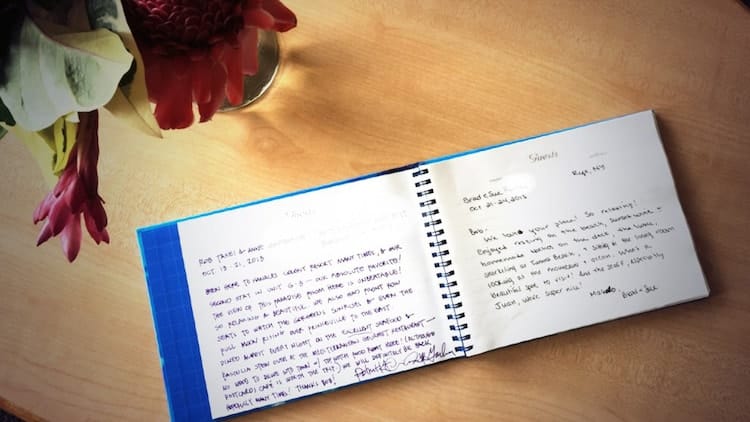 Guests
ROB
OCT 13-21, 2013
BEEN HERE TO HANALEI COLONY RESORT MANY TIMES, & OUR
SECOND STAY IN UNIT G-3 - OUR ABSOLUTE FAVORITE!
THE VIEW OF THIS PARADISE FROM HERE IS UNBEATABLE!
SO RELAXING & BEAUTIFUL. WE ALSO HAD FRONT ROW
SEATS TO WATCH THE GORGEOUS SUNRISES & EVEN THE
FULL MOON RISING OVER PRINCEVILLE TO THE EAST.
DINED ALMOST EVERY NIGHT ON THE EXCELLENT SEAFOOD &
OVER AT THE MEDITERRANEAN GOURMET RESTAURANT -
NO NEED TO DRIVE INTO TOWN WITH FOOD RIGHT HERE! (ALTHOUGH
POSTCARDS CAFÉ IS WORTH THE TRIP) WE WILL DEFINITELY BE BACK
HOPEFULLY MANY TIMES! THANKS BOB!
Guests
Brad & Sue
Rye, NY
Oct 21-24, 2013
Bob-
We love your place! So relaxing!
Enjoyed resting on the beach, sunset wine &
homemade on the deck, the hike,
snorkeling at Tunnels Beach, & sitting in the living room
looking at the mountains & ocean. What a
beautiful spot to visit! And the staff, especially
were super nice!
Mahalo,
Brad & Sue